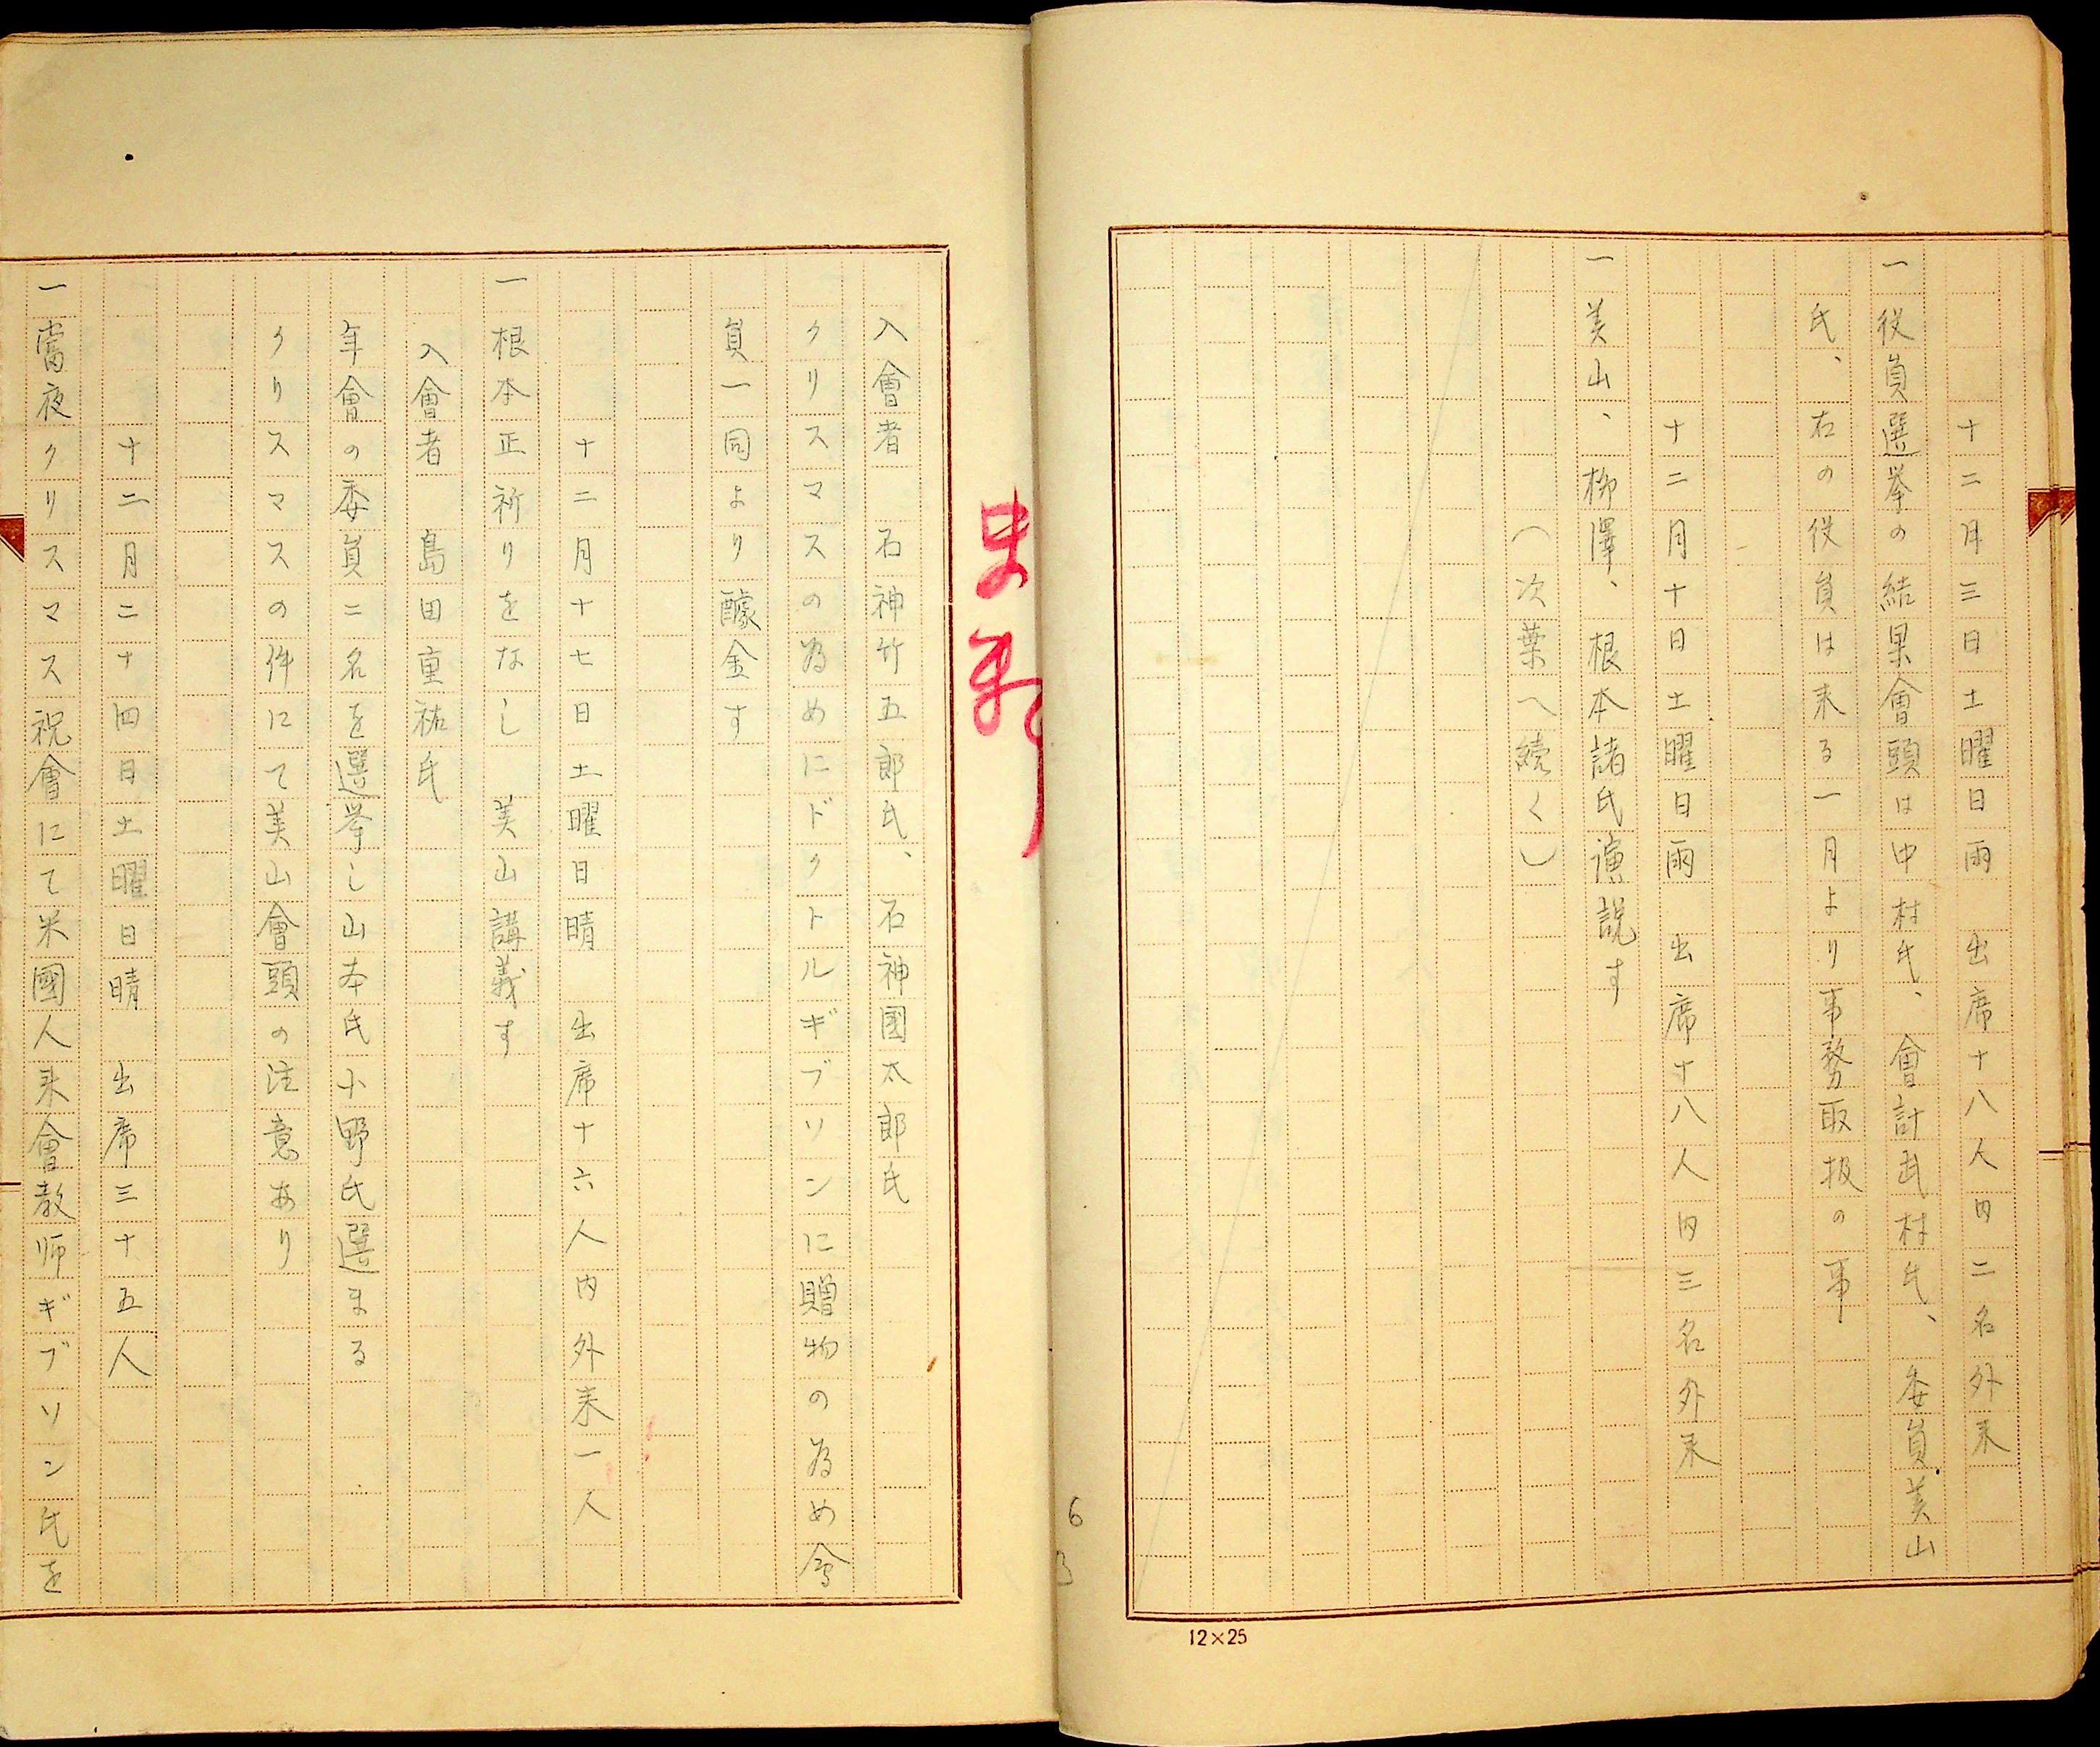 十二月三日土曜日雨　出席十八人内二名外来
一役員選挙の結果會頭は中村氏、會計武村氏、委員美山
氏、右の役員は来る一月より事務取扱の事
十二月十日土曜日雨　出席十八人内三名外来
一美山、柳澤、根本諸氏演説す
（次葉へ続く）
12×25
6
入會者　石神竹五郎氏、石神國太郎氏
クリスマスの為めにドクトルギブソンに贈物の為め會
員一同より醵金す
十二月十七日土曜日晴　出席十六人内外来一人
一根本正祈りをなし　美山講義す
入會者　島田重祐氏
年會の委員二名を選挙し山本氏小野氏選まる
クリスマスの件にて美山會頭の注意あり
十二月二十四日土曜日晴　出席三十五人
一當夜クリスマス祝會にて米國人来會教師ギブソン氏を